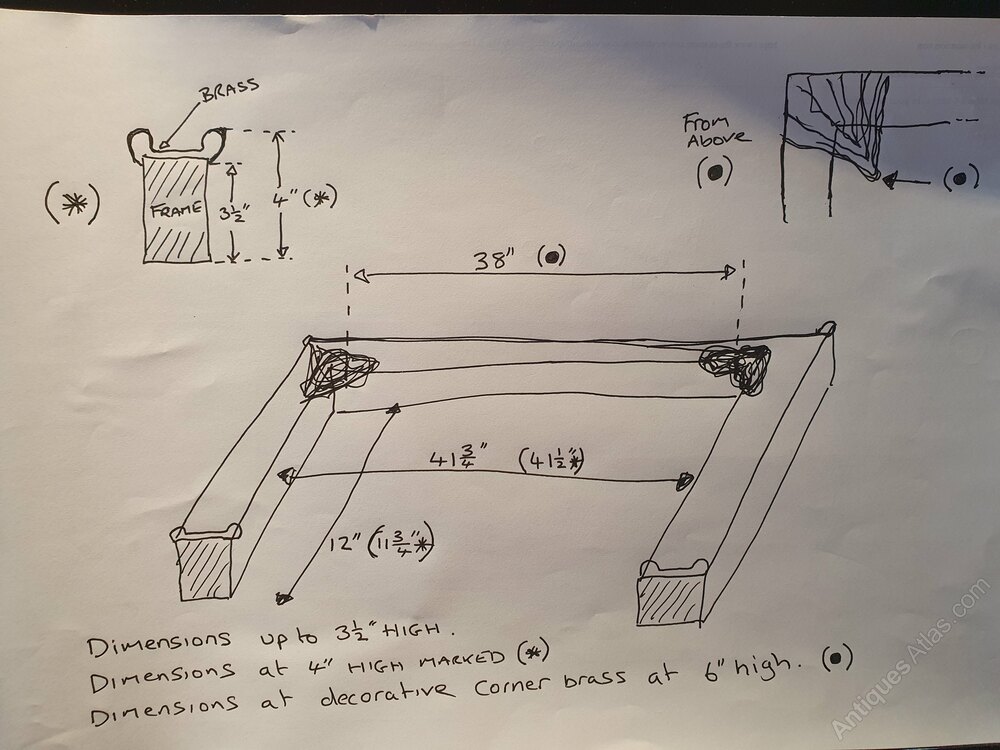 BRASS
From
Above
(●)
(●)
(*)
FRAME
3½"
4" (*)
38" (●)
41¾" (41½"*)
12" (11¾"*)
Dimensions up to 3½" HIGH.
Dimensions at 4" HIGH MARKED (*)
Dimensions at decorative Corner brass at 6" high. (●)
Antiques Atlas.com